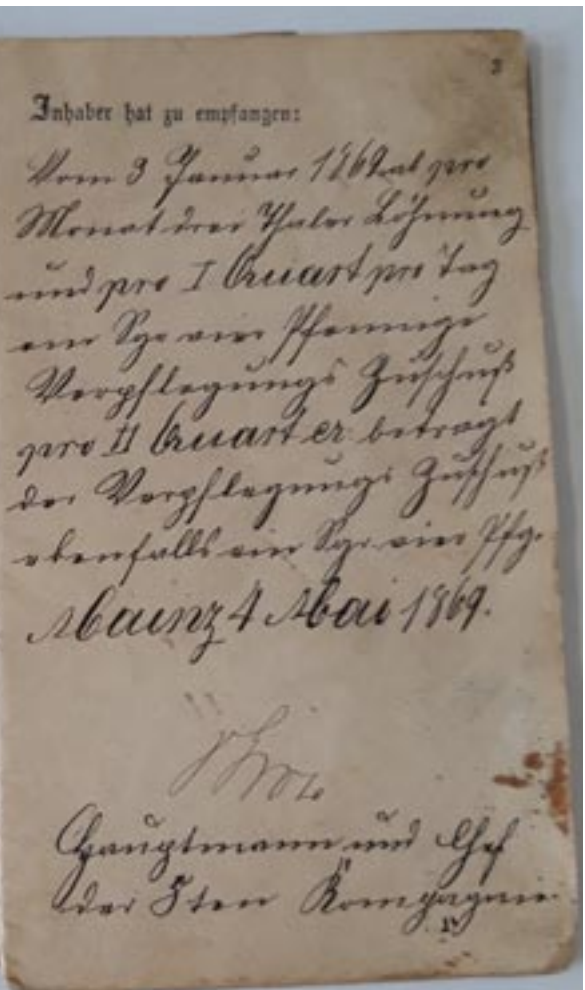 3
Inhaber hat zu empfangen:
Vom 3 Januar 1869 ab pro
Monat drei Thaler Löhnung
und pro I Quart pro Tag
ein Sgr vier Pfennige
Verpflegungs Zuschuß
pro II Quart er. beträgt
der Verpflegungs Zuschuß
ebenfalls ein Sgr. vier Pfg.
Mainz 4 Mai 1869.
Hauptmann und Chef
der 5ten Kompagnie